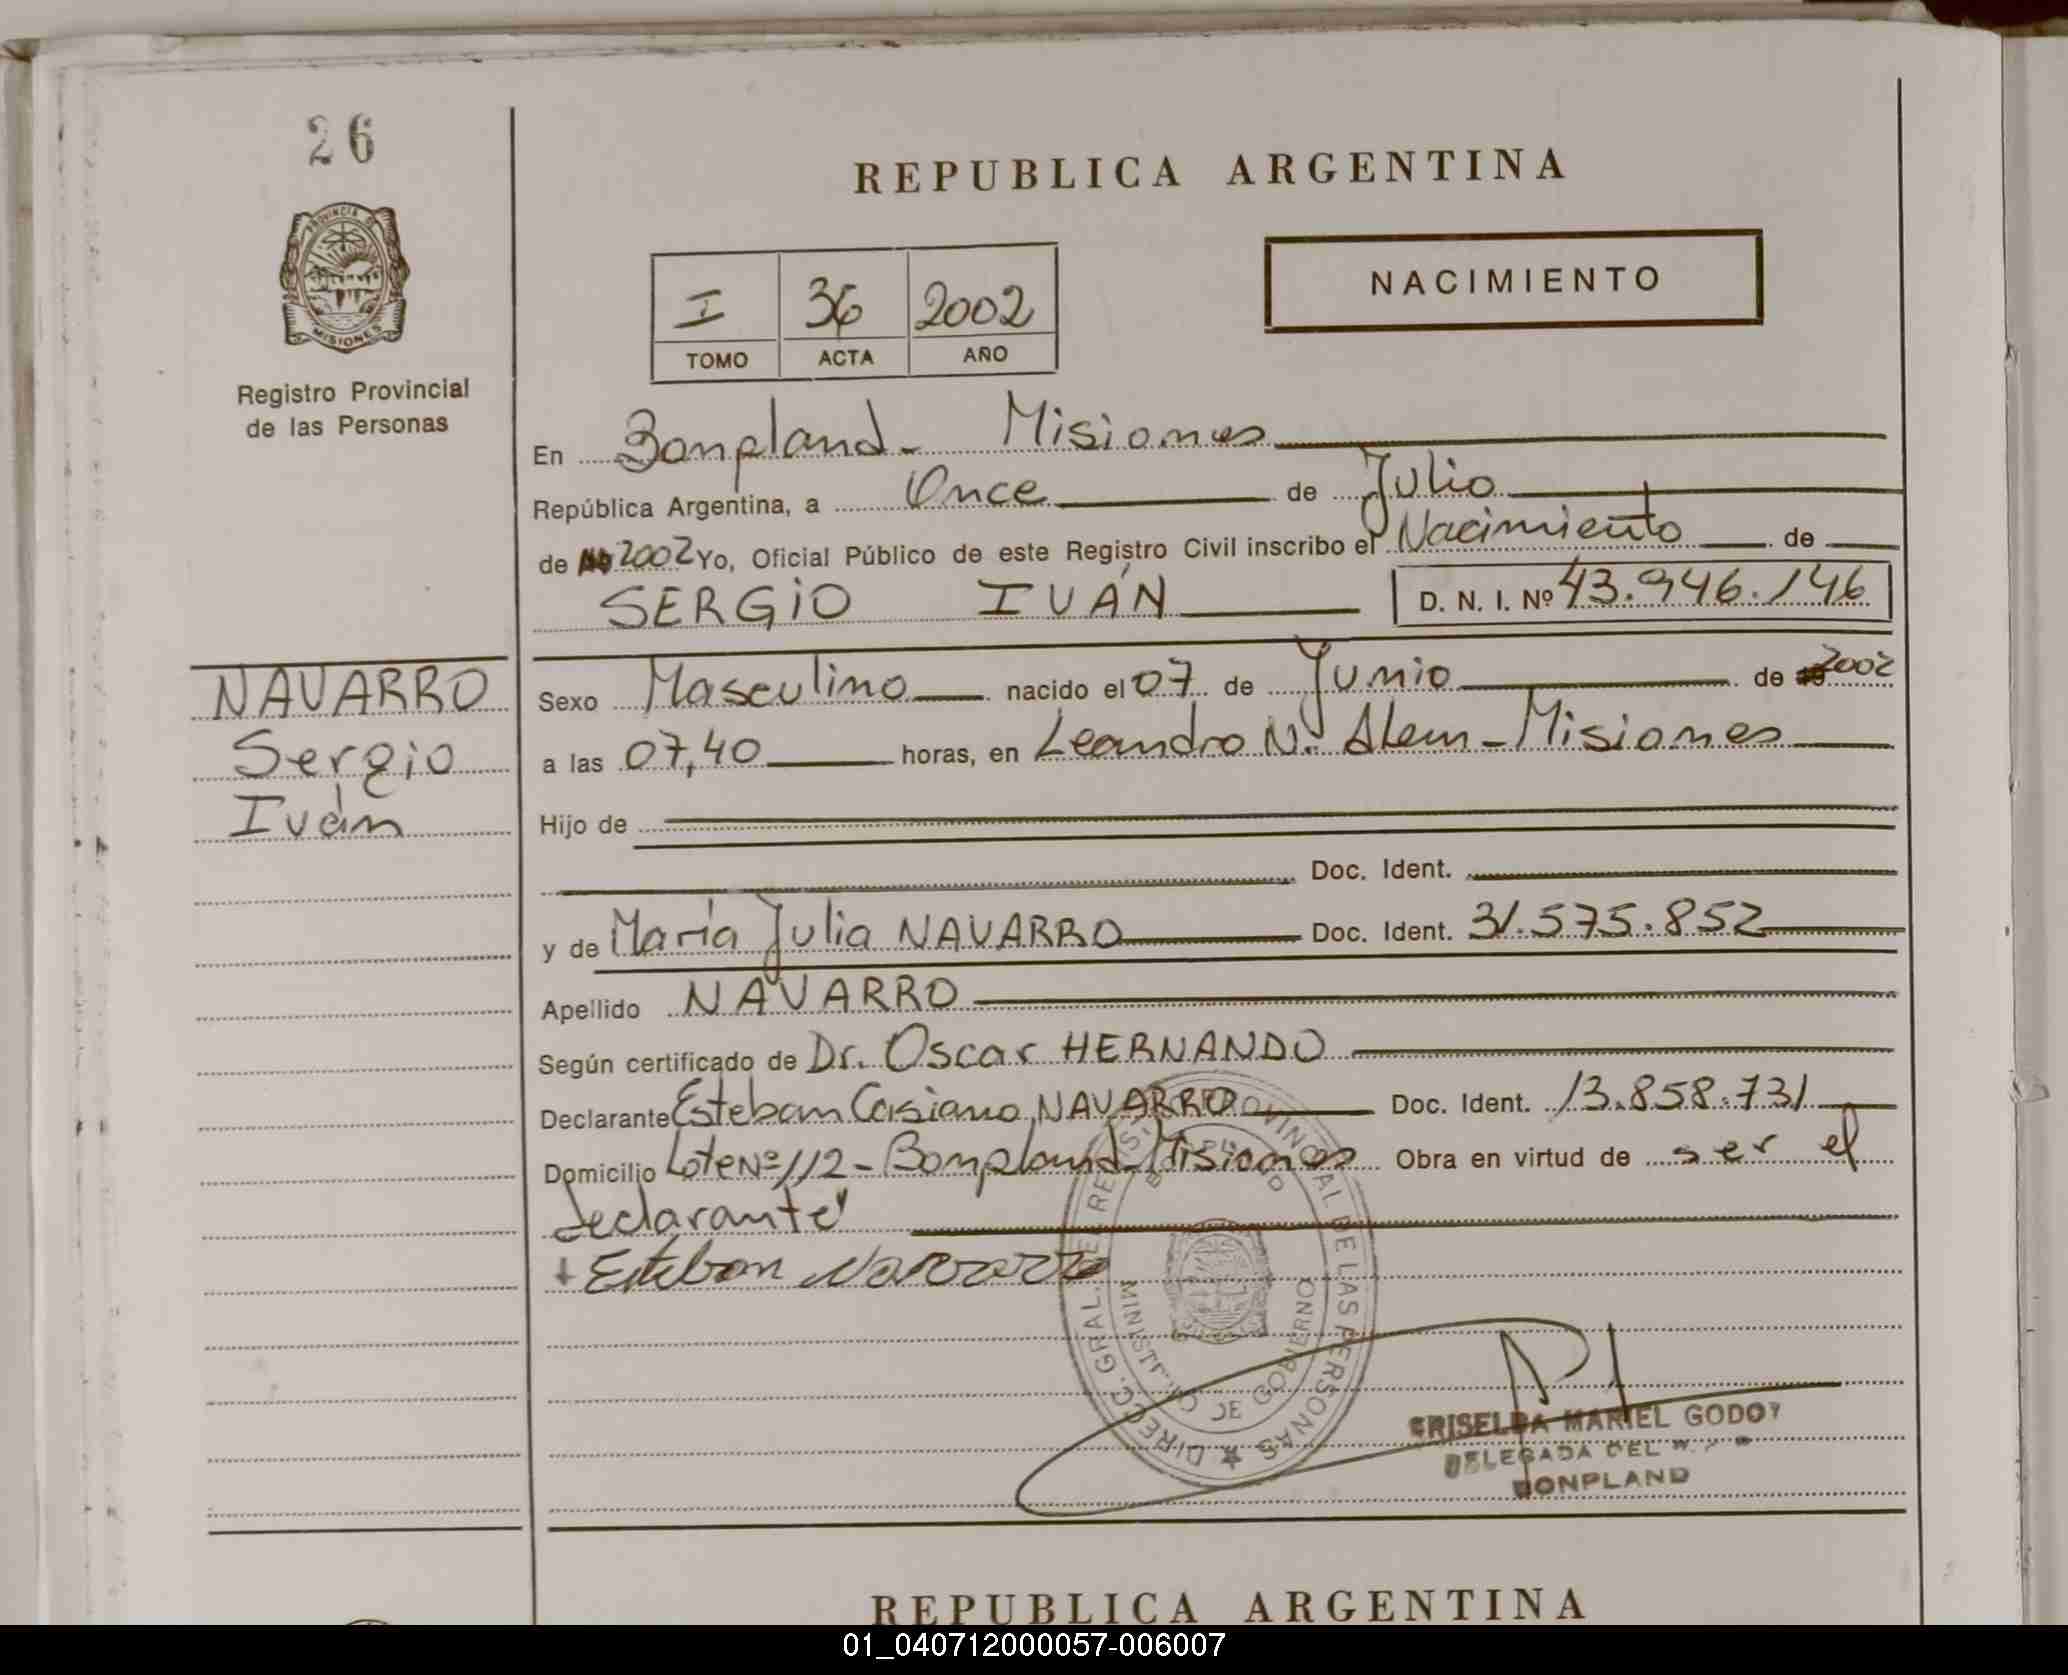 26
PROVINCIA DE
MISIONES
Registro Provincial
de las Personas
NAVARRO
Sergio
Iván
REPUBLICA ARGENTINA
I 36 2002
TOMO ACTA AÑO
NACIMIENTO
En Bonpland - Misiones
República Argentina, a Once de Julio
de 2002 Yo, Oficial Público de este Registro Civil inscribo el Nacimiento de
SERGIO IVÁN D. N. I. Nº 43.946.146
Sexo Masculino nacido el 07 de Junio de 2002
a las 07,40 horas, en Leandro N. Alem - Misiones
Hijo de
Doc. Ident.
y de María Julia NAVARRO Doc. Ident. 31.575.852
Apellido NAVARRO
Según certificado de Dr. Oscar HERNANDO
Declarante Esteban Casiano NAVARRO Doc. Ident. 13.858.731
Domicilio Lote Nº 112 - Bonpland - Misiones Obra en virtud de ser el
declarante
Esteban Navarro
DIRECC. GRAL. DEL REGISTRO PROVINCIAL DE LAS PERSONAS
DE GOBIERNO
GRISELDA MARIEL GODOY
DELEGADA DEL
BONPLAND
REPUBLICA ARGENTINA
01_040712000057-006007